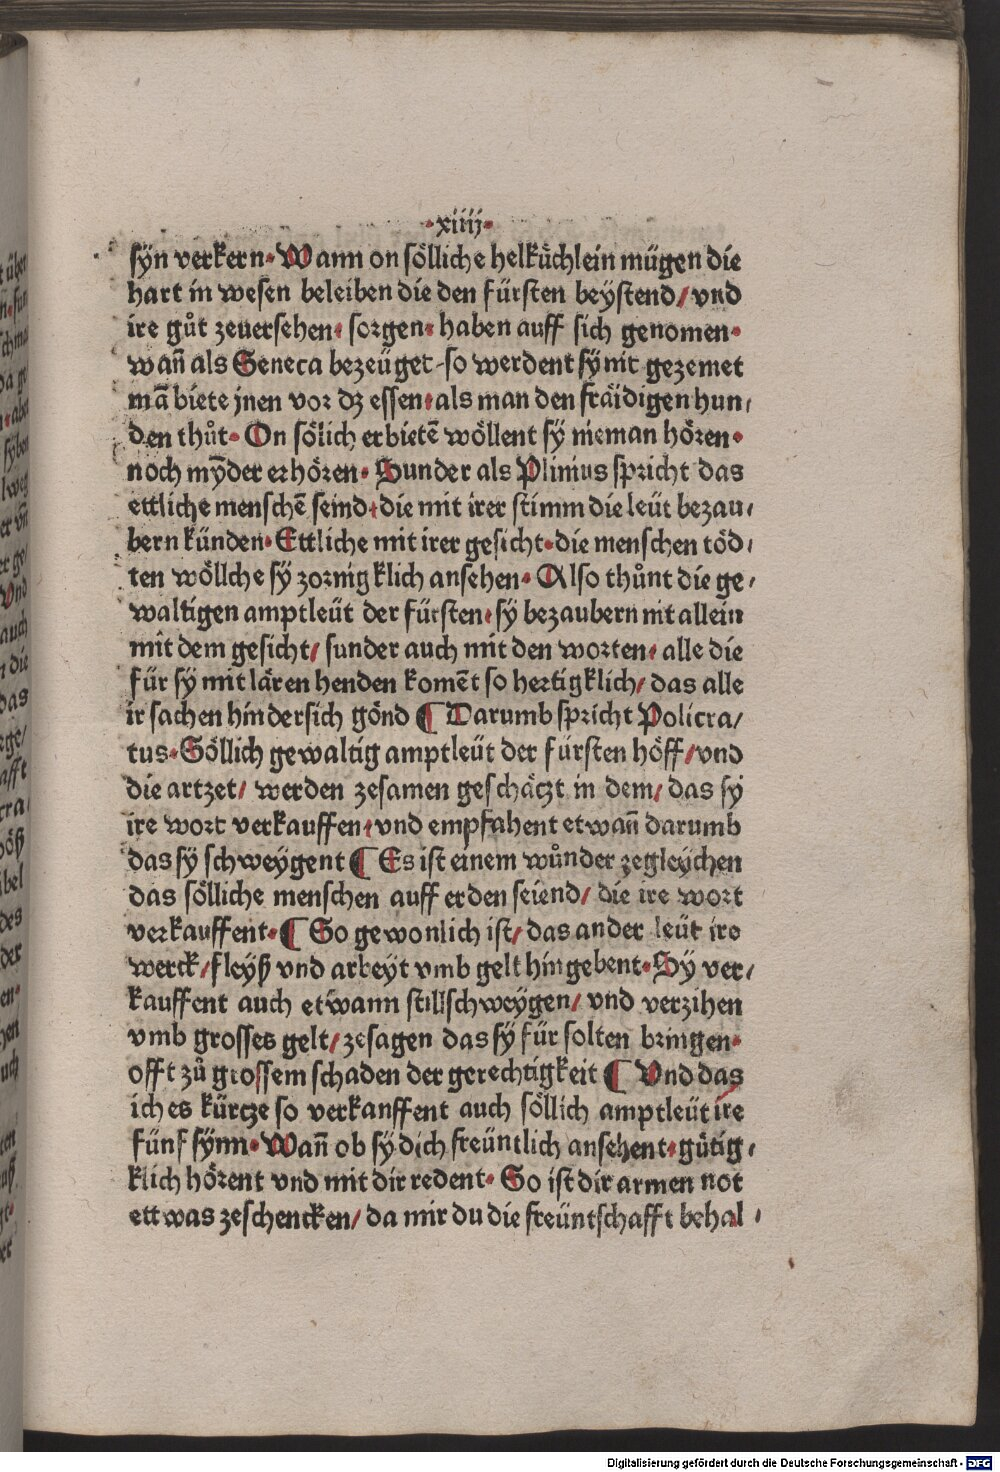 ·xiiij·
sÿn verkern· Wann on sölliche helkuͤchlein mügen die
hart in wesen beleiben die den fürsten beÿstend/ vnd
ire guͦt zeuersehen· sorgen· haben auff sich genomen·
wañ als Seneca bezeüget·so werdent sÿ nit gezemet
mā biete jnen vor dz essen·als man den fräidigen hun/
den thuͦt· On sölich erbietē wöllent sÿ nieman hören·
noch mÿder erhören· Sunder als Plinius spricht das
ettliche menschē seind·die mit irer stimm die leüt bezau/
bern künden· Ettliche mit irer gesicht·die menschen töd/
ten wöllche sÿ zornigklich ansehen· Also thuͦnt die ge/
waltigen amptleüt der fürsten·sÿ bezaubern nit allein
mit dem gesicht/ sunder auch mit den worten· alle die
für sÿ mit lären henden komēt so hertigklich/ das alle
ir sachen hindersich gönd ¶ Darumb spricht Policra/
tus·Söllich gewaltig amptleüt der fürsten höff/vnd
die artzet/ werden zesamen geschätzt in dem/ das sÿ
ire wort verkauffen·vnd empfahent etwañ darumb
das sÿ schweÿgent ¶ Es ist einem wuͦnder zegleÿchen
das sölliche menschen auff erden seiend/ die ire wort
verkauffent·¶ So gewonlich ist/ das ander leüt ire
werck/fleÿß vnd arbeÿt vmb gelt hingebent· Sÿ ver/
kauffent auch etwann stillschweÿgen/ vnd verzihen
vmb grosses gelt/zesagen das sÿ für solten bringen·
offt zuͦ grossem schaden der gerechtigkeit ¶ Vnd das
ich es kürtze so verkanffent auch söllich amptleüt ire
fünf sÿnn· Wañ ob sÿ dich freüntlich ansehent·guͤtig/
klich hörent vnd mit dir redent· So ist dir armen not
ettwas zeschencken/ da mir du die freüntschafft behal/
Digitalisierung gefördert durch die Deutsche Forschungsgemeinschaft - DFG